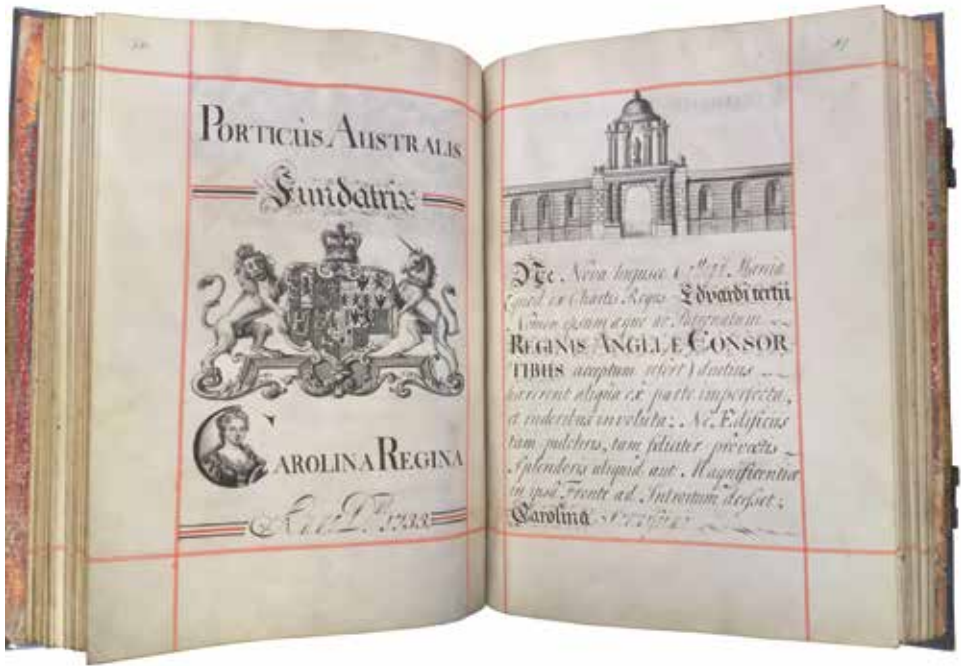 PORTICUS AUSTRALIS
Fundatrix
CAROLINA REGINA
1733
Ne Nova hujusce
quod in Chartis Regis Edvardi tertii
Nomen ipsum æque ac
REGINIS ANGLIÆ CONSOR
TIBUS acceptum refert) diutius
hærerent aliqua ex parte imperfecta,
et ruderibus involuta: Ne Ædificiis
tam pulchris, tam feliciter provectis
Splendoris aliquid aut Magnificentiæ
in ipsa Fronte ad Introitum deesset:
Carolina